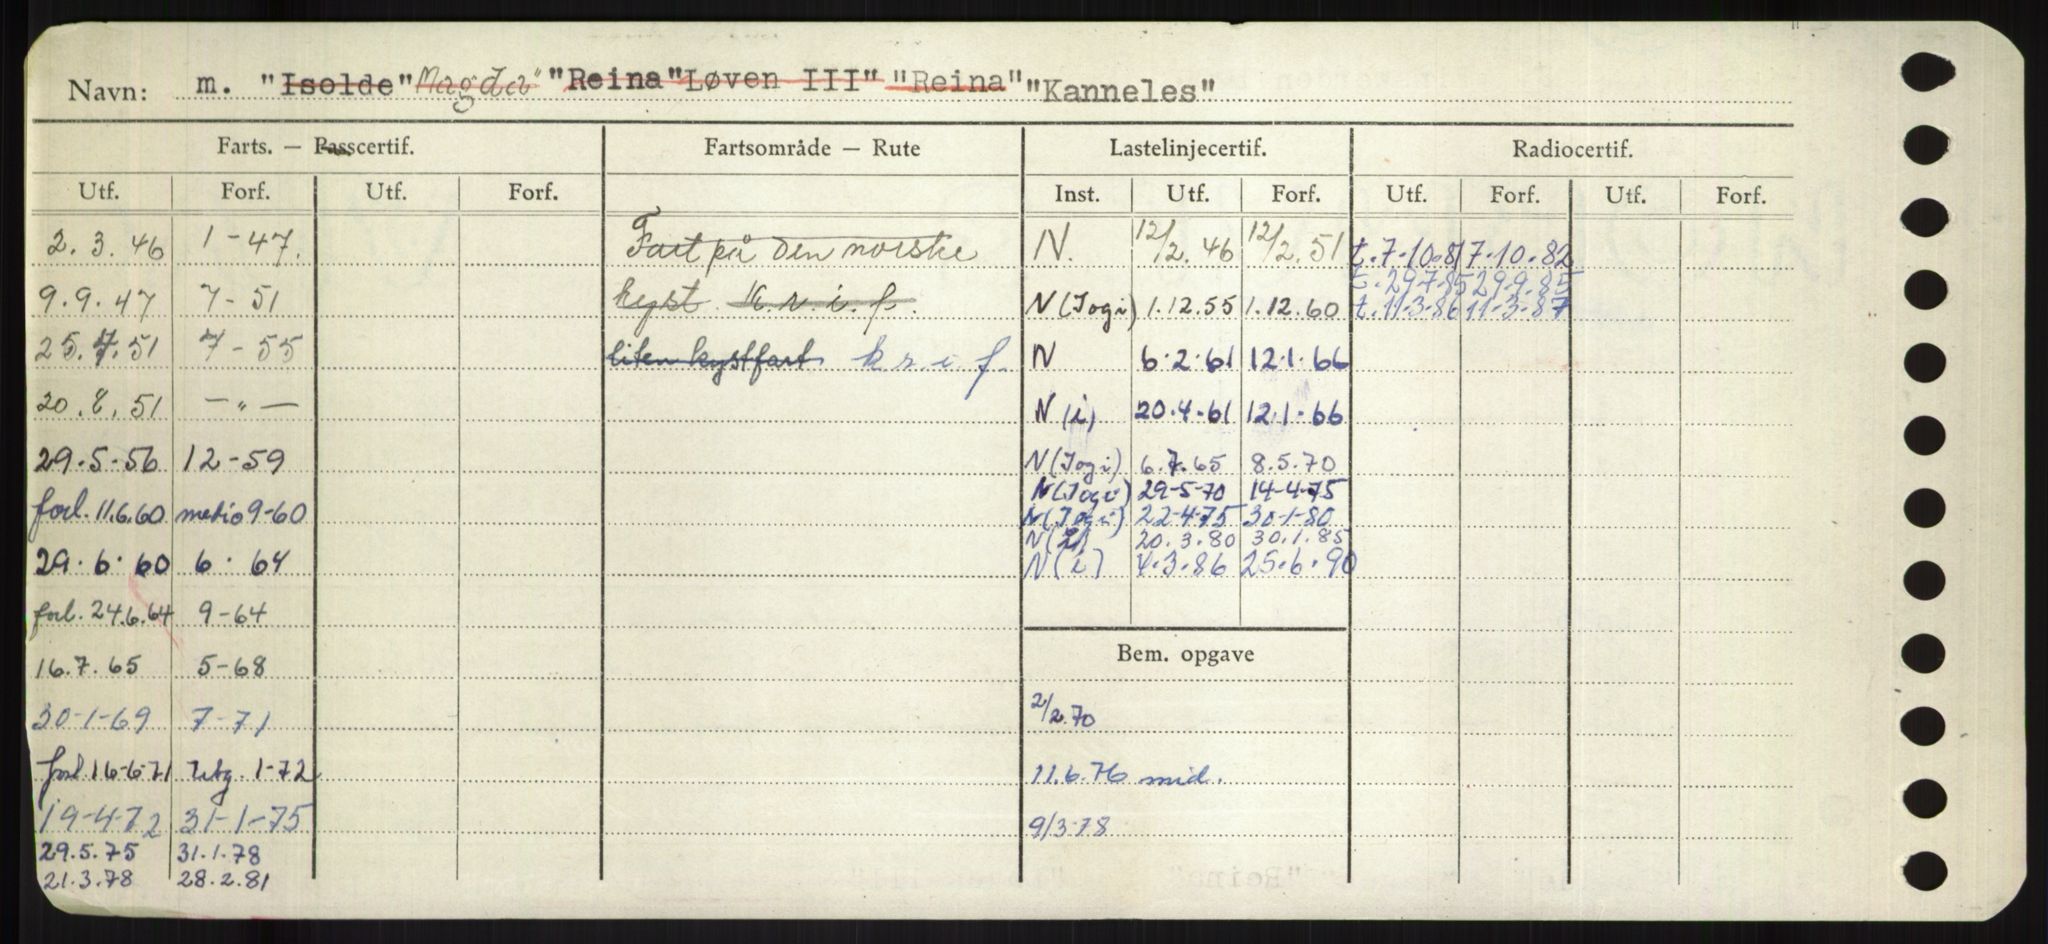 Navn: m. "Isolde" "Magda" "Reina" "Løven III" "Reina" "Kanneles"
Farts. — Passcertif. Fartsområde — Rute Lastelinjecertif. Radiocertif.
Utf. Forf. Utf. Forf. Inst. Utf. Forf. Utf. Forf. Utf. Forf.
2.3.46 1-47. Fart på den norske N. 12/2.46 12/2.51 t.7.10.81 7.10.82
t.29.7.85 29.9.85
9.9.47 7-51 kyst k.r.i.f. N(Jogi) 1.12.55 1.12.60 t.11.3.86 11.3.87
25.7.51 7-55 liten kystfart k r. i. f. N 6.2.61 12.1.66
20.8.51 —"— N(i) 20.4.61 12.1.66
29.5.56 12-59 N(Jogi) 6.7.65 8.5.70
N(Jogi) 29-5-70 14-4-75
forl. 11.6.60 medio 9-60 N(Jogi) 22-4-75 30-1-80
N(i) 20.3.80 30.1.85
29.6.60 6.64 N(i) 4.3.86 25.6.90
forl. 24.6.64 9-64
16.7.65 5-68 Bem. opgave
30-1-69 7-71 2/2.70
forl 16-6-71 utg. 1-72 11.6.76 mid.
19-4-72 31-1-75 9/3-78
29.5.75 31.1.78
21.3.78 28.2.81